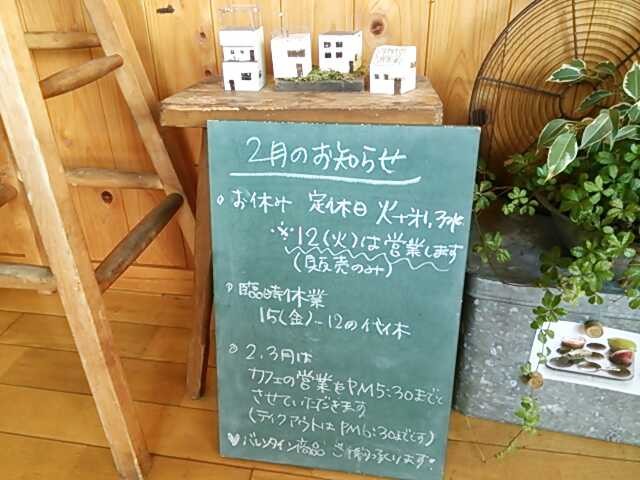 2月のお知らせ
お休み 定休日 火+第1,3水
※12(火)は営業します
(販売のみ)
臨時休業
15(金)…12の代休
2.3月は
カフェの営業をPM5:30までと
させていただきます
(テイクアウトはPM6:30までです)
♥バレンタイン商品 ご予約承ります。